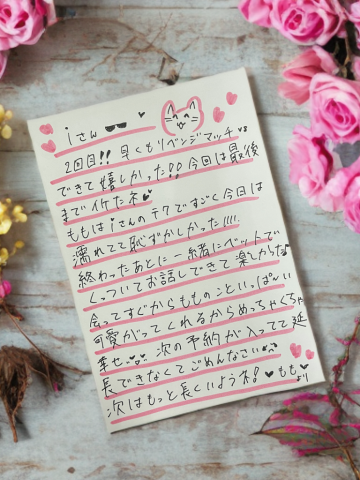 iさん
2回目!! 早くもリベンジマッチ
できて嬉しかった!! 今回は最後
まで行けたネ
ももはiさんのテクですごく今日は
濡れてて恥ずかしかった!!!!
終わったあとに一緒にベットで
くっついてお話しできて楽しかった
会ってすぐからもものこといっぱ〜い
可愛がってくれるからめっちゃくちゃ
幸せ... 次の予約が入ってて延
長できなくてごめんなさい
次はもっと長くいようネ! ♥もも♥
より